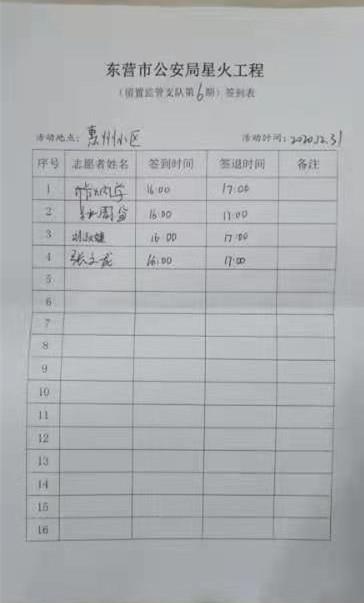 东营市公安局星火工程
(留置监管支队第6期)签到表
活动地点:惠州小区 活动时间:2020.12.31
序号 志愿者姓名 签到时间 签退时间 备注
1 16:00 17:00
2 16:00 17:00
3 16:00 17:00
4 张文龙 16:00 17:00
5
6
7
8
9
10
11
12
13
14
15
16